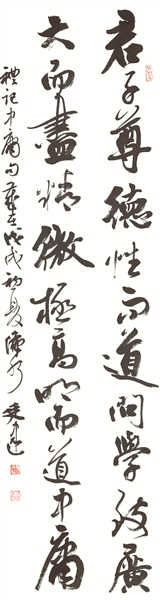 君子尊德性而道問學致廣
大而盡精微極高明而道中庸
禮記中庸句 歲在戊戌初夏